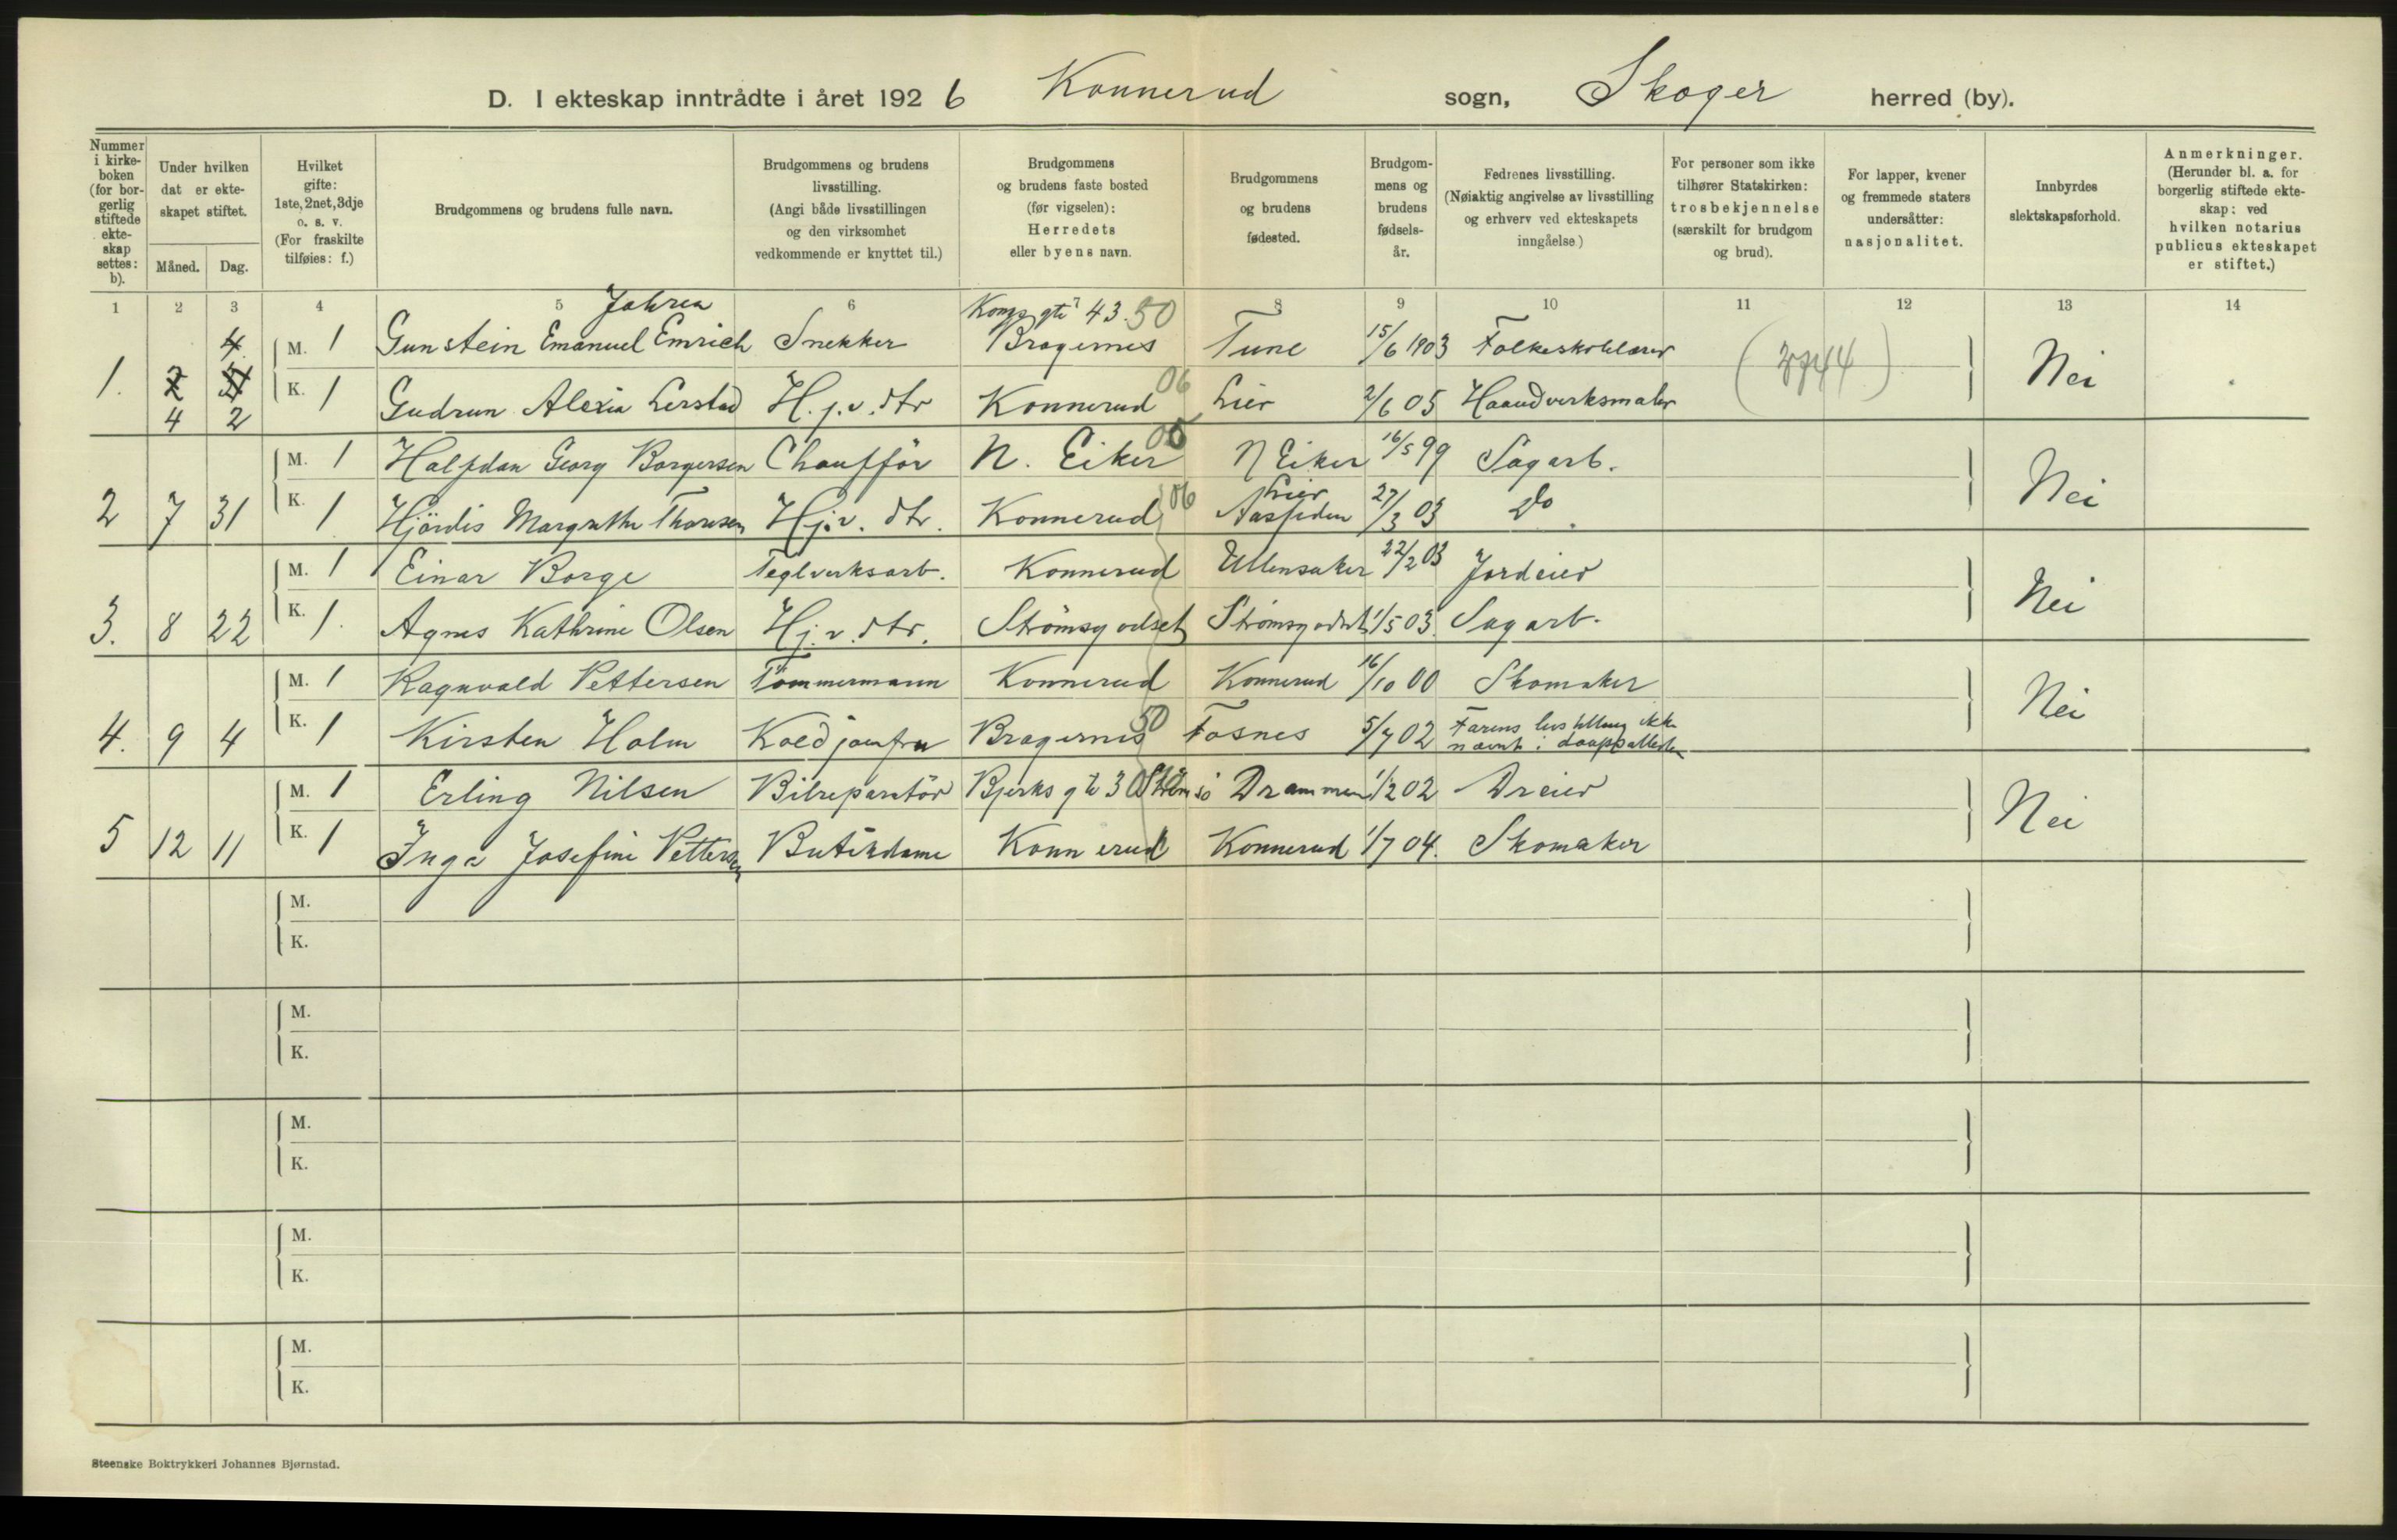 D. I ekteskap inntrådte i året 1926 Konnerud sogn, Skoger herred (by).
Nummer i kirkeboken (for borgerlig stiftede ekteskap settes: b).
Under hvilken dat er ekteskapet stiftet.
Måned. Dag.
Hvilket gifte: 1ste, 2net, 3dje o. s. v. (For fraskilte tilføies: f.)
Brudgommens og brudens fulle navn.
Brudgommens og brudens livsstilling. (Angi både livsstillingen og den virksomhet vedkommende er knyttet til.)
Brudgommens og brudens faste bosted (før vigselen): Herredets eller byens navn.
Brudgommens og brudens fødested.
Brudgommens og brudens fødselsår.
Fedrenes livsstilling. (Nøiaktig angivelse av livsstilling og erhverv ved ekteskapets inngåelse.)
For personer som ikke tilhører Statskirken: trosbekjennelse (særskilt for brudgom og brud).
For lapper, kvener og fremmede staters undersåtter: nasjonalitet.
Innbyrdes slektskapsforhold.
Anmerkninger. (Herunder bl. a. for borgerlig stiftede ekteskap: ved hvilken notarius publicus ekteskapet er stiftet.)
1 2 3 4 5 6 8 9 10 11 12 13 14
Jahren
43. 50
4 M. 1 Gunstein Emanuel Emrich Snekker Bragernes Tune 15/6 1903 Folkeskolelærer
1. Nei
K. 1 Gudrun Alexia Lerstad H.j.v. dtr Konnerud 06 Lier 2/6 05 Haandverksmaler
4 2
M. 1 Halfdan Georg Borgersen Chaufför N. Eiker 05 N Eiker 16/5 99 Sagarb.
Lier
2 7 31 K. 1 Hjördis Margrethe Thoresen Hj.v. dtr. Konnerud 06 Aassiden 27/3 03 Do. Nei
M. 1 Einar Borge Teglverksarb. Konnerud Ullensaker 22/2 03 Jordeier
3. 8 22 K. 1. Agnes Kathrine Olsen Hj.v. dtr. Strömsgodset Strömsgodset 1/5 03 Sagarb. Nei
M. 1 Ragnvald Pettersen Tömmermann Konnerud Konnerud 16/10 00 Skomaker
4. 9 4 K. 1 Kirsten Holm Koldjomfru Bragernes 50 Fosnes 5/7 02 Farens livstilling ikke
nævnt i daapsattesten Nei
M. 1 Erling Nilsen Bilreparatör Bjerks gt 30 Strömsö Drammen 1/2 02 Dreier
5 12 11 K. 1 Inga Josefine Pettersen Butikdame Konnerud Konnerud 1/7 04. Skomaker Nei
M.
K.
M.
K.
M.
K.
M.
K.
M.
K.
Steenske Boktrykkeri Johannes Bjørnstad.